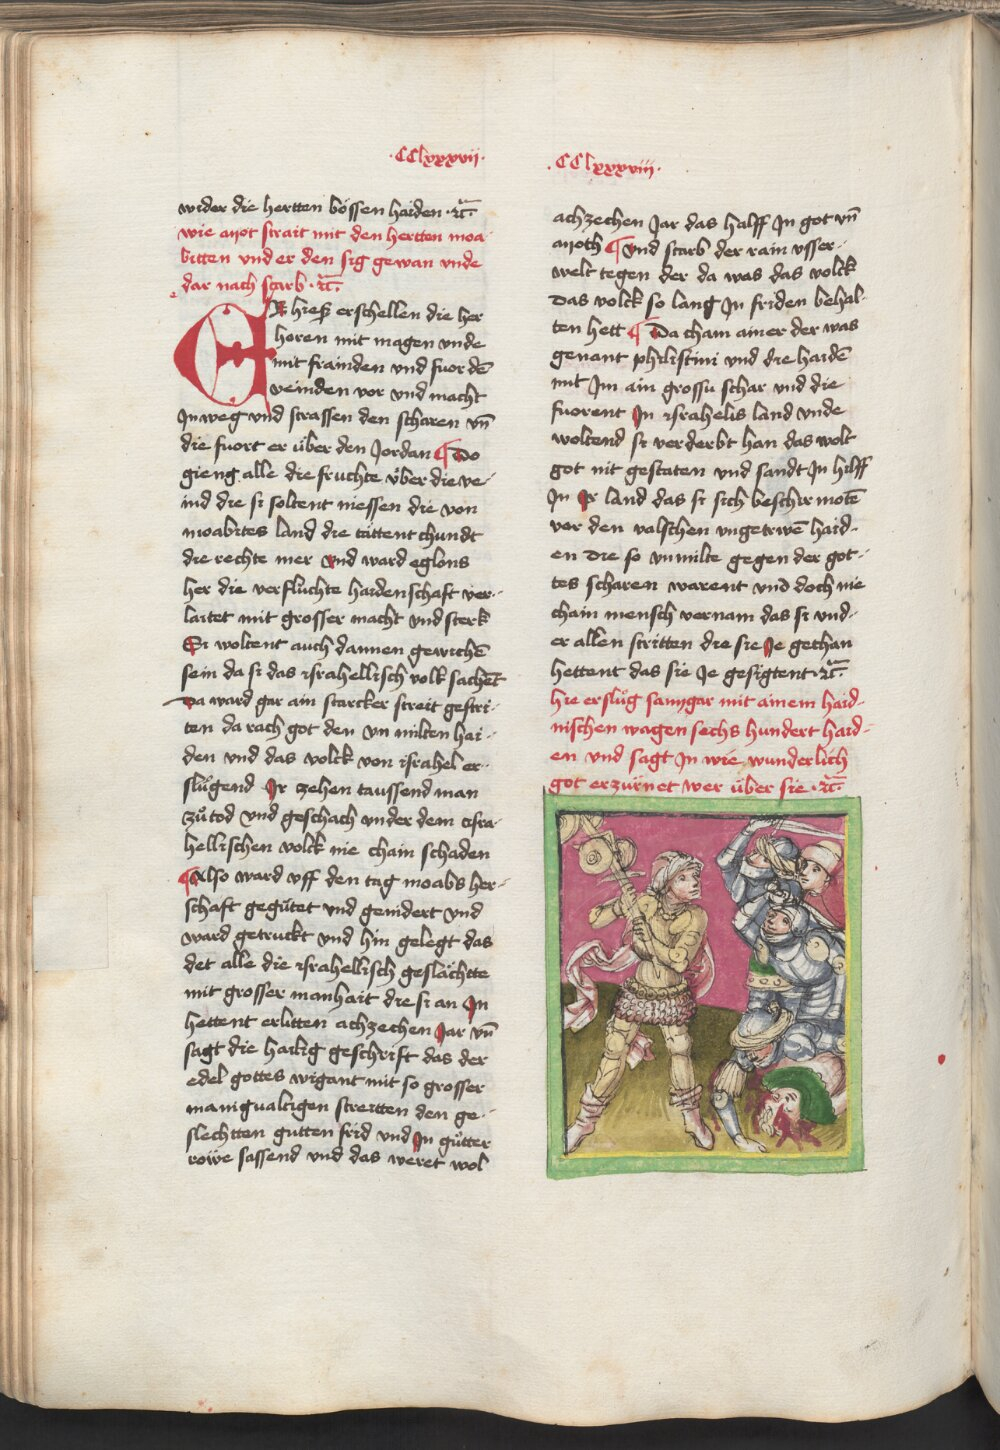 ·CClxxxvii·
wider die hertten bössen haiden ·ꝛc̄·
wie aiot strait mit den hertten moa-
bitten vnd er den sig gewan vnde
dar nach starb ·ꝛc̄·
ER hies erschellen die her
horen mit magen vnde
mit frainden vnd fuor dē
veinden vor vnd macht
Jn weg vnd strassen den scharen vn̄
die fuort er über den Jordan Do
gieng alle die fruchte über die ve-
ind die si soltent niessen die von
moabites land die tättent chundt
die rechte mer vnd ward eglons
her die verfluchte haidenschaft ver-
laitet mit grosser macht vnd sterk
Si woltent auch dannen gewichē
sein da si das israhellisch volk sachēt
Da ward gar ain starcker streit gestri-
ten da rach got den vn milten hai-
den vnd das volck von israhel er-
slůgend Jr zehen taussend man
zů tod vnd geschach vnder dem isra-
hellischen volck nie chain schaden
Also ward vff den tag moabs her-
schaft gegůtet vnd genidert vnd
ward getruckt vnd hin gelegt das
det alle die israhellisch geslächtte
mit grosser manhait die si an Jn
hettent erlitten achzechen Jar vn̄
sagt die hailig geschrift das der
edel gottes wigant mit so grosser
manigualtigen streitten den ge-
slechtten gutten frid vnd Jn gůtter
rowe sassend vnd das weret wol
·CClxxxviii·
achzechen Jar das halff Jn got vn̄
aioth Vnd starb der rain vsser-
welt tegen der da was das volck
Das volck so lang Jn friden behal-
ten hett Da cham ainer der was
genant philistini vnd die haidē
mit Jm ain grossu schar vnd die
fuorent Jn israhelis land vnde
woltend si verderbt han das wolt
got nit gestaten vnd sandt Jn hilff
Jn Jr land das si sich beschirmotē
vor den valschen vngetrwē haid-
en Die so vnmilte gegen der got-
tes scharen warent vnd doch nie
chain mensch vernam das si vnd-
er allen stritten die sie Je gethan
hettent das sie Je gesigtent ·ꝛc̄·
hie erslůg samgar mit ainem haid-
nischen wagen sechs hundert haid-
en vnd sagt Jn wie wunderlich
got erzürnet wer über sie ·ꝛc̄·